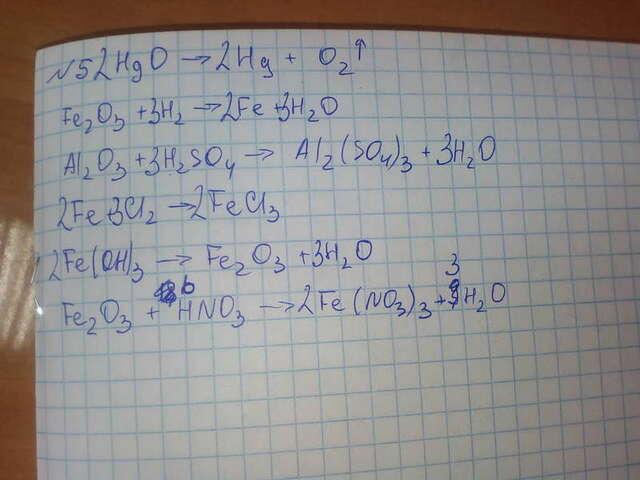 N5 2HgO → 2Hg + O₂↑
Fe₂O₃ + 3H₂ → 2Fe + 3H₂O
Al₂O₃ + 3H₂SO₄ → Al₂(SO₄)₃ + 3H₂O
2Fe + 3Cl₂ → 2FeCl₃
2Fe(OH)₃ → Fe₂O₃ + 3H₂O
Fe₂O₃ + 6HNO₃ → 2Fe(NO₃)₃ + 3H₂O